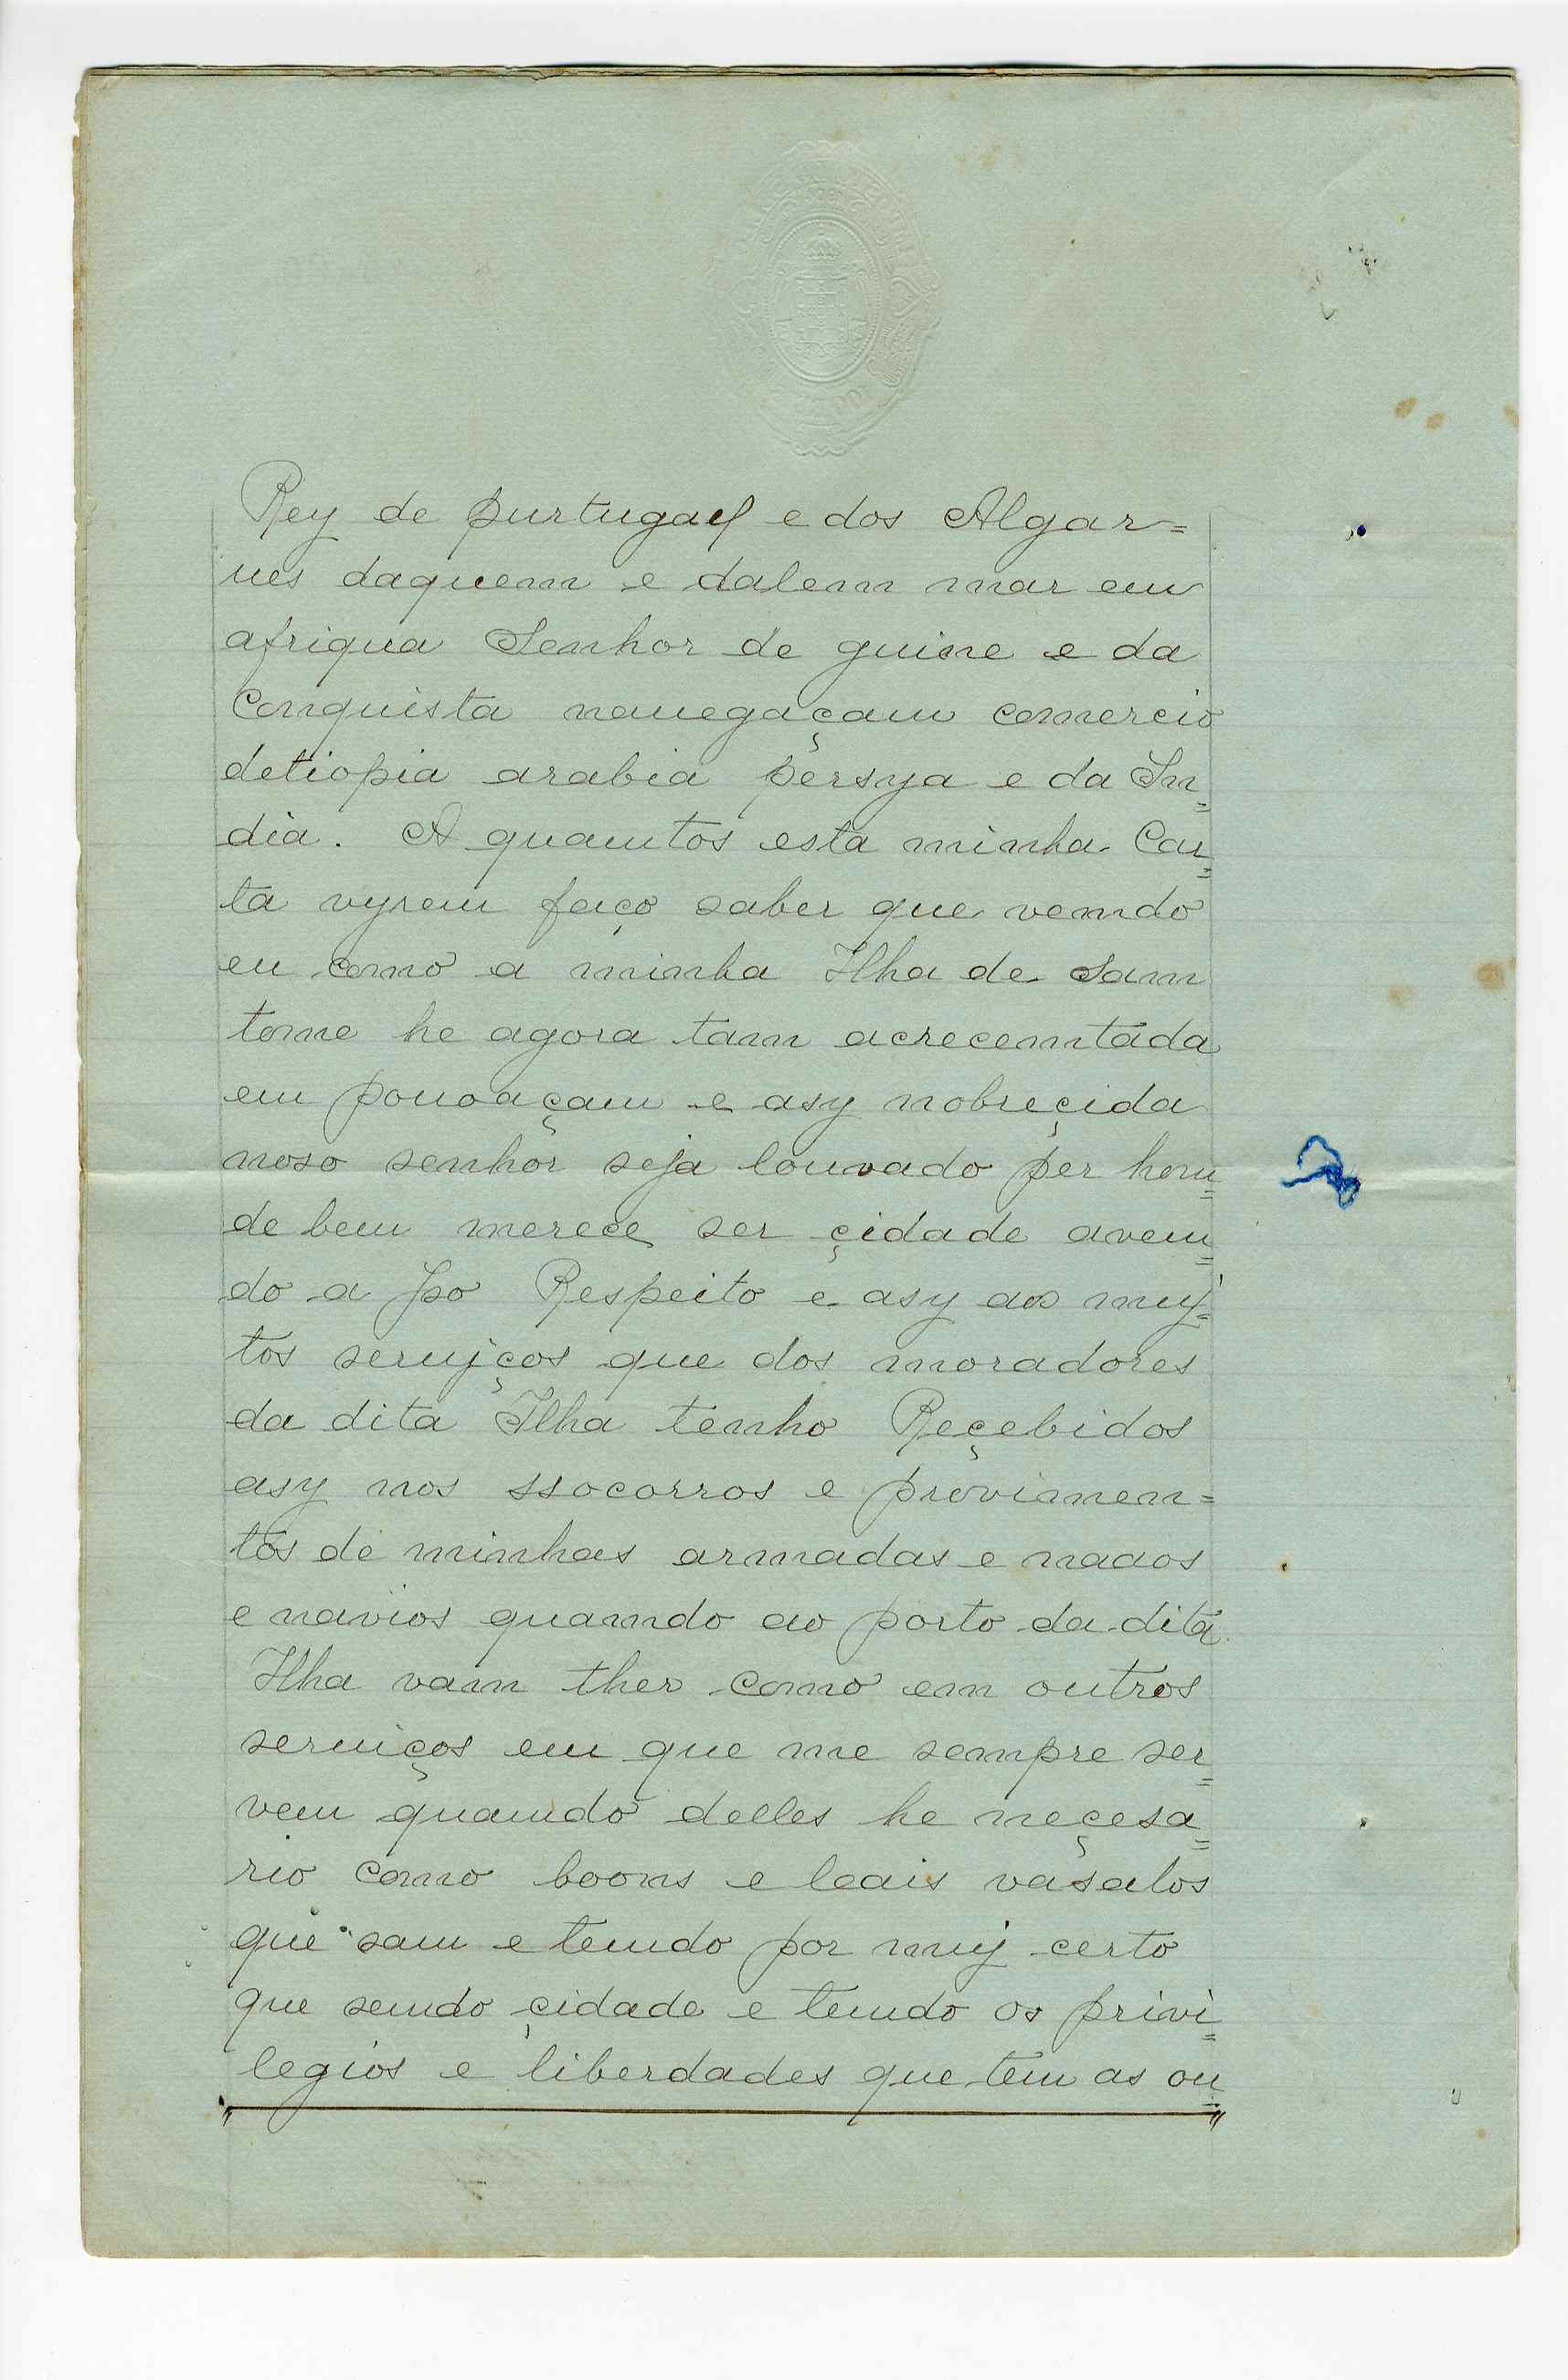 Rey de purtugall e dos Algar=
ues daquem e dalem mar em
afriqua Senhor de guine e da
Conquista nauegaçam comercio
detiopia arabia persya e da In=
dia. A quamtos esta minha Car=
ta vyrem faço saber que vemdo
eu como a minha Ilha de Sam
tome he agora tam acrecemtada
em pouoaçam e asy nobreçida
noso senhor seja louvado per hom=
de bem merece ser çidade avem=
do a Jso Respeito e asy aos muy=
tos seruyços que dos moradores
da dita Ilha tenho Reçebidos
asy nos ssocorros e provimen=
tos de minhas armadas e naaos
e navios quamdo ao porto da dita
Ilha vam ther como em outros
seruiços em que me sempre ser=
vem quamdo delles he neçesa=
rio como boons e leais vasalos
que sam e temdo por muy certo
que semdo çidade e temdo os privi=
legios e liberdades que tem as ou=